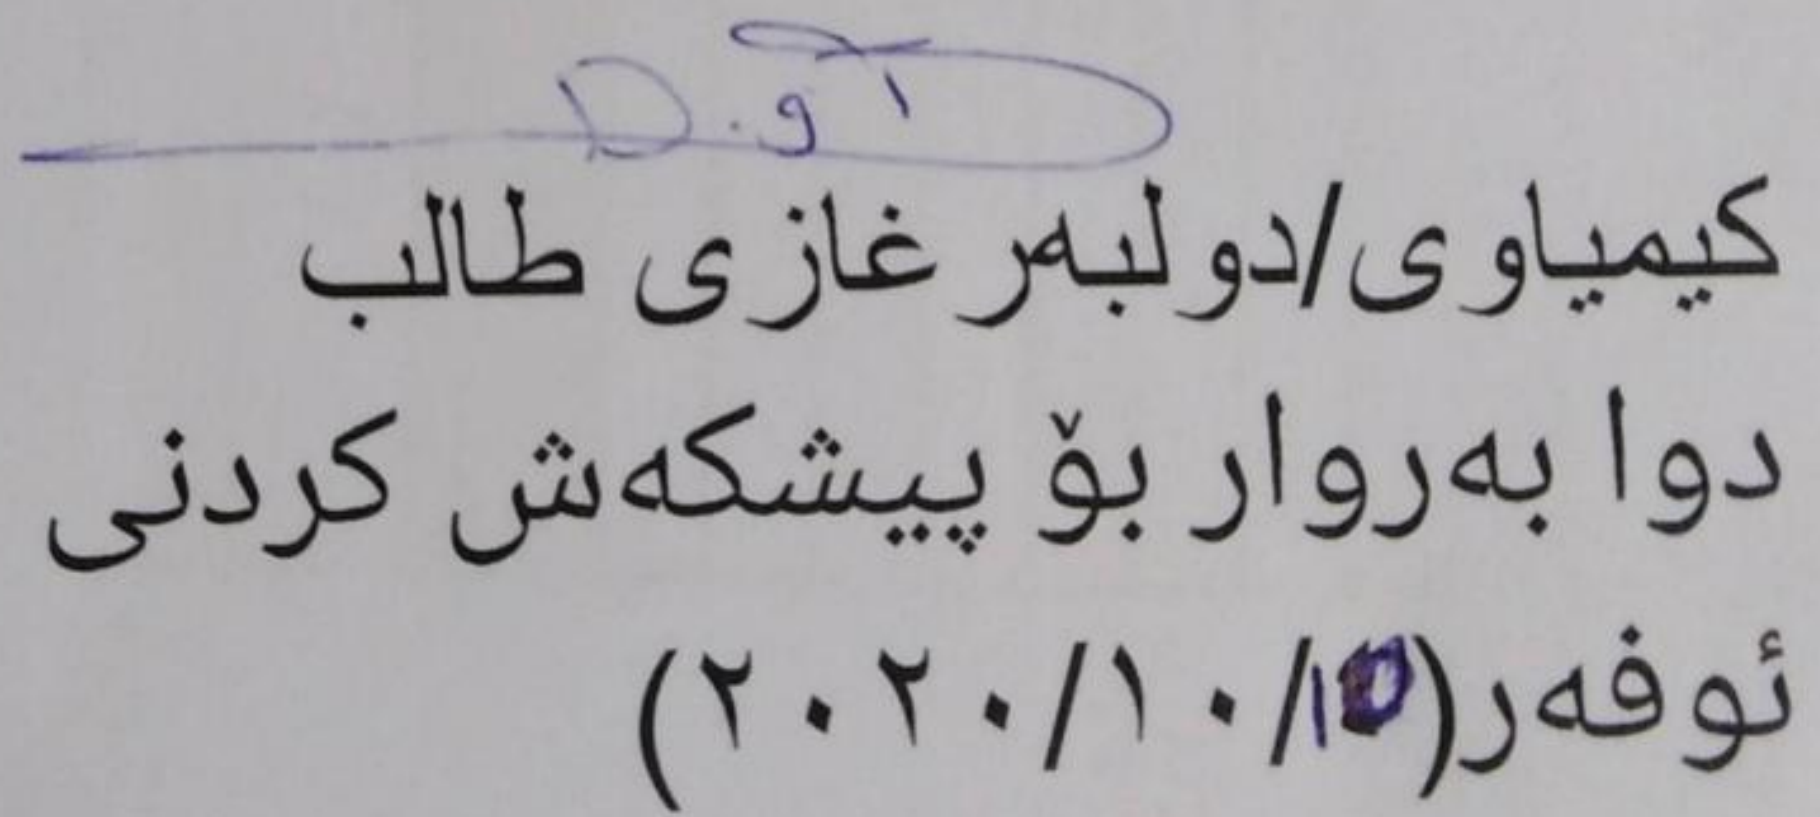 کیمیاوی/دولبەر غازی طالب
دوا بەروار بۆ پیشکەش کردنی
ئوفەر(١٥/١٠/٢٠٢٠)